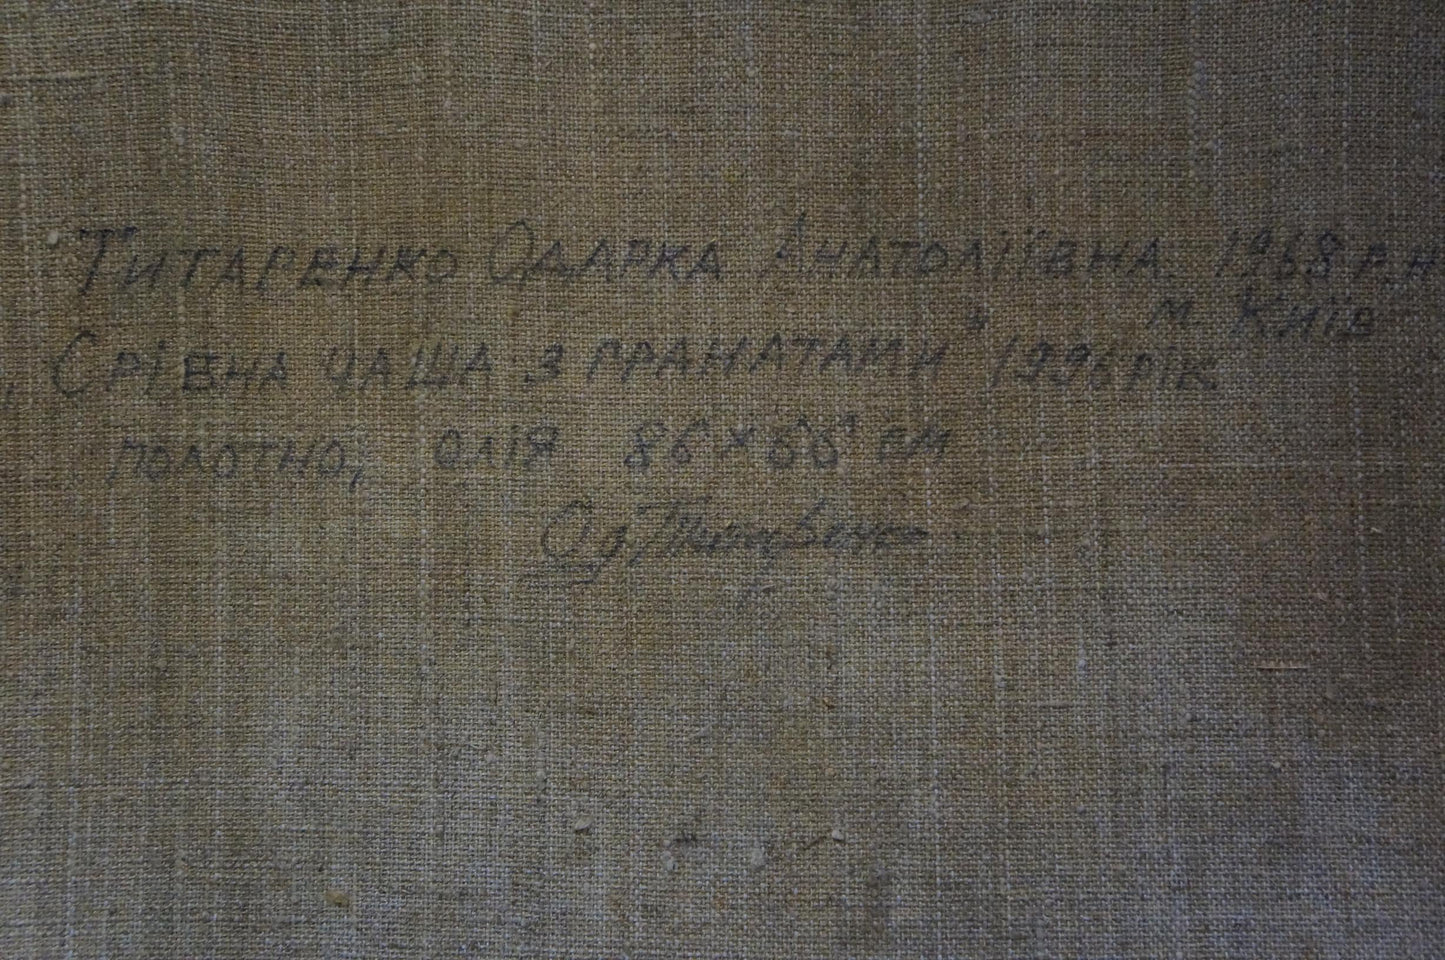 Титаренко Одарка Анатоліївна 1968 р.н
м. Київ
„Срівна чаша з гранатами" 1996 рік
полотно, олія 86х66 см